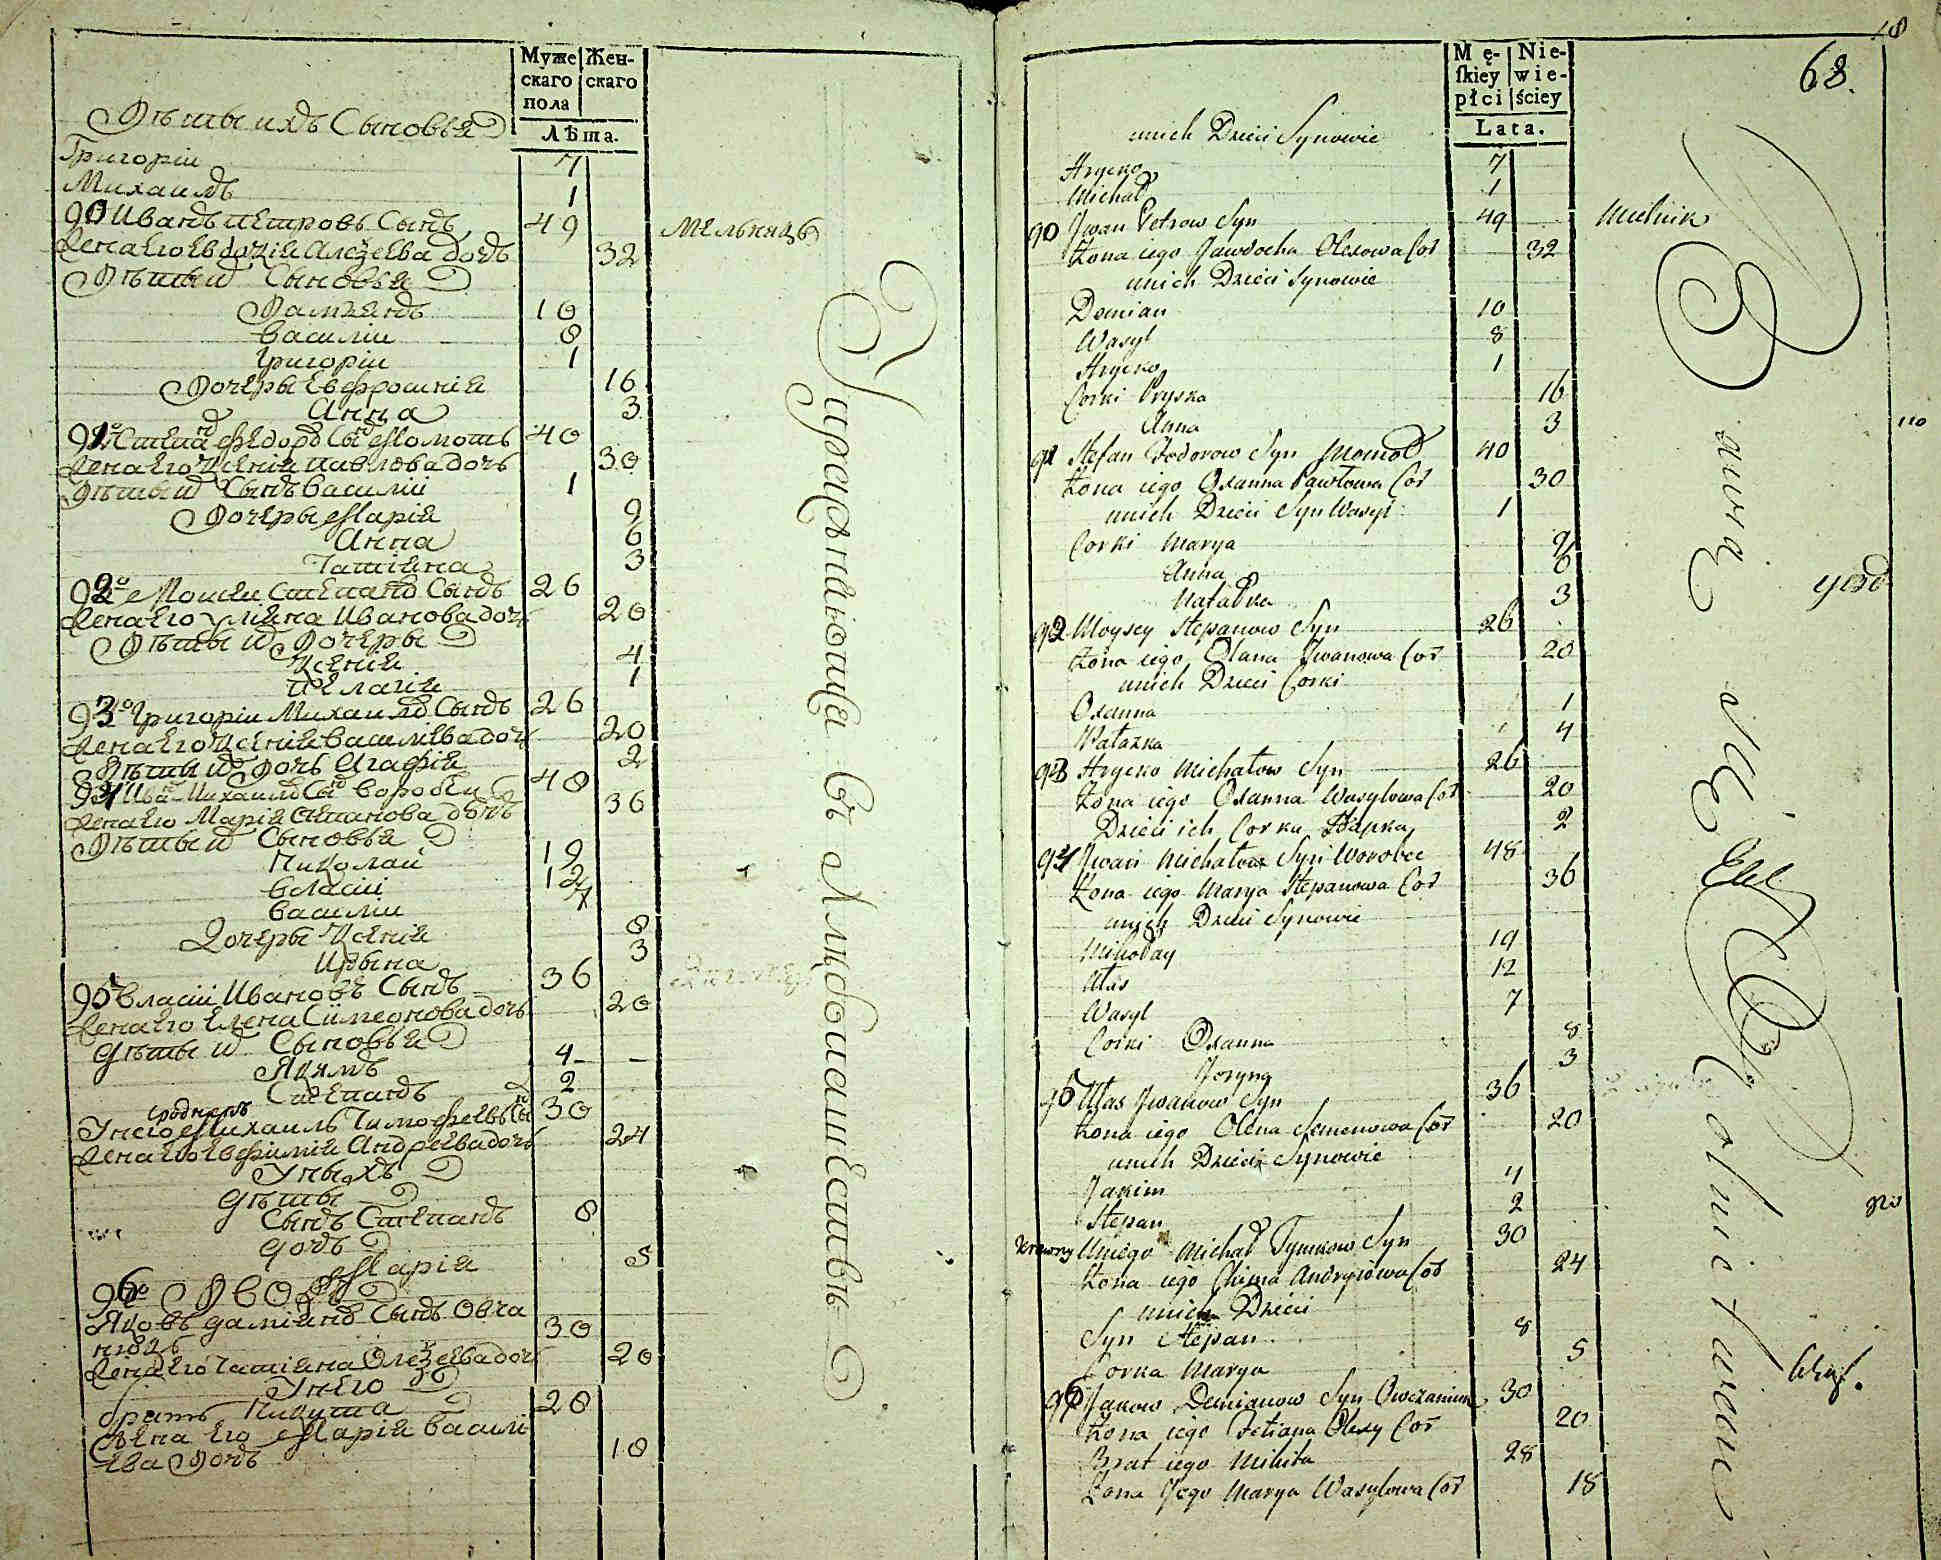 Муже Жен-
скаго скаго
пола
Лѣта.
Дѣты ихъ Сыновья
Григоріи 7
Михаилъ 1
90 Иванъ Петровъ Сынъ 49 Мельникъ
Жена его Евдокія Алеѯеева дочь 32
Дѣты их Сыновья
Дамъянъ 10
Василіи 8
Григоріи 1
Дочеры Евфросинія 16
Анна 3
91 Стефа Федоро Сы Момотъ 40
Жена его Ѯенія Павлова дочь 30
Дѣты их Сынъ Василіи 1
Дочеры Марія 9
Анна 6
Татіяна 3
92 Моисеи Степано Сынъ 26
Жена его Уліяна Иванова доч 20
Дѣты их Дочеры
Ѯенія 4
Пелагія 1
93 Григоріи Михаило Сынъ 26
Жена его Ѯенія Василіева доч 20
Дѣты их дочь Агафія 2
94 Ива Михаило Сы Воробеи 48
Жена его Марія Степанова дочь 36
Дѣты их Сыновья
Николаи 19
Власіи 12
Василіи 7
Дочеры Ѯенія 8
Ирына 3
95 Власіи Ивановъ Сынъ 36
Жена его Елена Симеонова дочь 20
Дѣты их Сыновья
Якимъ 4
Степанъ 2
сродникъ
У него Михаилъ Тимофеевъ Сы 30
Жена его Евфимія Андреева дочь 24
У ныхъ
Дѣты
Сынъ Степанъ 8
Дочь
Марія 5
96 Дворъ
Яковъ Даміяно Сынъ Овча 30
никъ
Жена его Татіяна Олеѯеева доч 20
У него
братъ Никита 28
Жена его Марія Василі 18
ева Дочь
Mę- Nie-
ſkiey wie-
płci ściey
Lata.
18
68.
unich Dzieci Synowie
Hrycko 7
Michał 1
90 Jwan Petrow Syn 49 Mielnik
Żona iego Jawdocha Olexowa Coł 32
unich Dzieci Synowie
Demian 10
Wasyl 8
Hrycko 1
Corki Pryska 16
Anna 3
91 Stefan Fedorow Syn Momot 40
Żona iego Oxanna Pawłowa Coł 30
unich Dzieci Syn Wasyl 1
Corki Marya 9
Anna 6
Natałka 3
92 Moysey Stepanow Syn 26
Żona iego Olana Jwanowa Coł 20
unich Dzieci Corki
Oxanna 1
Natałka 4
93 Hrycko Michałow Syn 26
Żona iego Oxanna Wasylowa Coł 20
Dzieci ich Corka Hapka 2
94 Jwan Michałow Syn Worobec 48
Żona iego Marya Stepanowa Coł 36
unich Dzieci Synowie
Mikołay 19
Ułas 12
Wasyl 7
Corki Oxanna 8
Joryna 3
95 Ułas Jwanow Syn 36
Żona iego Olena Semenowa Coł 20
unich Dzieci Synowie
Jakim 4
Stepan 2
krewny Uniego Michał Tymkow Syn 30
Żona iego Chima Andryiowa Coł 24
unich Dzieci
Syn Stepan 8
Corka Marya 5
96 Jakow Demianow Syn Owczannik 30
Żona iego Tetiana Olexy Coł 20
Brat iego Mikita 28
Żona Jego Marya Wasylowa Coł 18
по
уезд